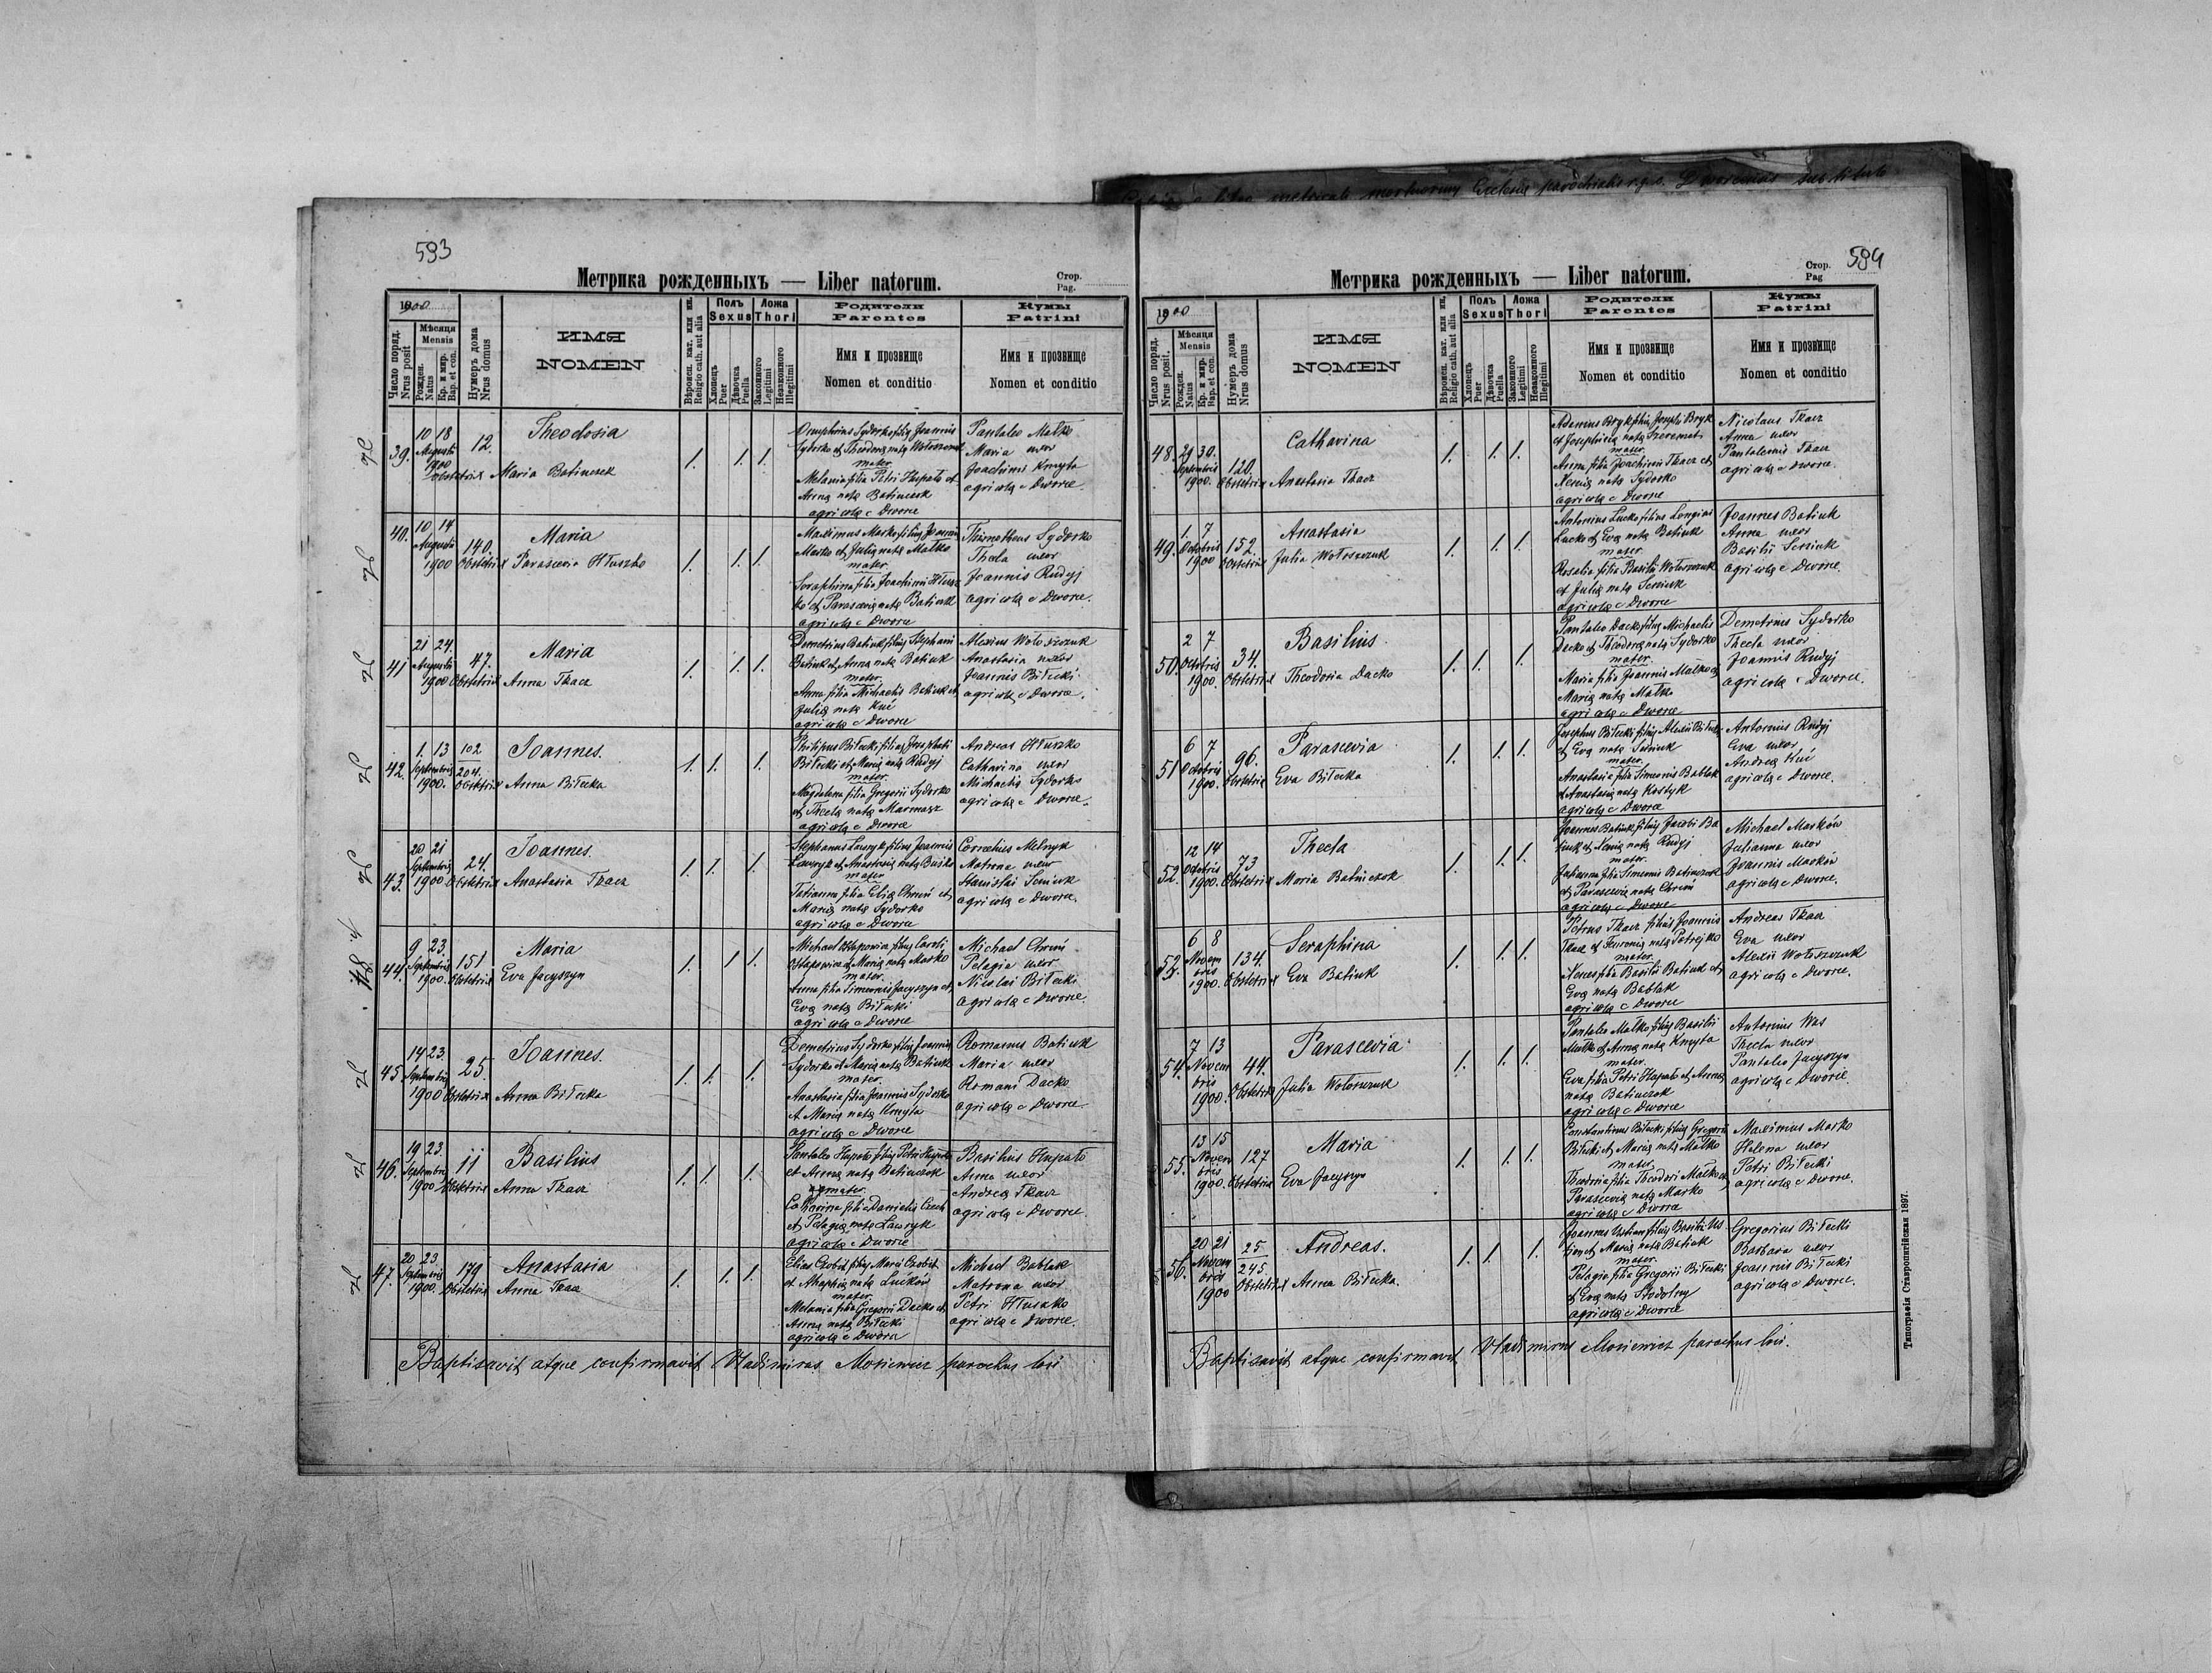 593
Метрика рожденныхъ — Liber natorum.
Стор.
Pag.
1900
Число поряд.
Nrus posit
Мѣсяця
Mensis
Рожден.
Natus
Кр. и мир.
Bap. et con.
Нумеръ дома
Nrus domus
ИМЯ
NOMEN
Вѣроисп. кат. или ин.
Religio cath. aut alia
Полъ
Sexus
Хлопецъ
Puer
Дѣвочка
Puella
Ложа
Thori
Законного
Legitimi
Незаконного
Illegitimi
Родители
Parentes
Имя и прозвище
Nomen et conditio
Кумы
Patrini
Имя и прозвище
Nomen et conditio
39. 10 18 Augusti 1900 12. Theodosia
Obstetrix Maria Batiuczek
1. 1. 1.
Onuphrius Sydorko filius Joannis
Sydorko et Theodora nata Wołoszczuk
mater
Melania filia Petri Hupało et
Anna nata Batiuczek
agricolae e Dworce
Pantaleo Małko
Maria uxor
Joachimi Kmyta
agricolae e Dworce.
40. 10 14 Augusti 1900 140. Maria
Obstetrix Parascevia Hłuszko
1. 1. 1.
Maximus Marko filius Joannis
Marko et Julia nata Małko
mater.
Seraphina filia Joachimi Hłusz
ko et Parascevia nata Batiuk
agricolae e Dworce
Thimotheus Sydorko
Thecla uxor
Joannis Rudyj
agricolae e Dworce.
41 21 24. Augusti 1900 47. Maria
Obstetrix Anna Tkacz
1. 1. 1.
Demetrius Batiuk filius Stephani
Batiuk et Anna nata Batiuk
mater.
Anna filia Michaelis Batiuk et
Julia nata Kuć
agricolae e Dworce
Alexius Wołoszczuk
Anastasia uxor
Joannis Biłecki
agricolae e Dworce.
42. 1. 13 Septembris 1900. 102 204. Joannes.
Obstetrix Anna Biłecka
1. 1. 1.
Philipus Biłecki filius Josaphati
Biłecki et Maria nata Rudyj
mater.
Magdalena filia Gregorii Sydorko
et Thecla nata Marmasz
agricolae e Dworce
Andreas Hłuszko
Catharina uxor
Michaelis Sydorko
agricolae e Dworce.
43. 20 21 Septembris 1900 24. Joannes.
Obstetrix Anastasia Tkacz
1. 1. 1.
Stephanus Lawryk filius Joannis
Lawryk et Anastasia nata Busko
mater
Tatianna filia Eliae Chruń et
Maria nata Sydorko
agricolae e Dworce
Cornelius Melnyk
Matrona uxor
Stanislai Seniuk
agricolae e Dworce.
44. 9 23. Septembris 1900. 151 Maria
Obstetrix Eva Jacyszyn
1. 1 1.
Michael Ostapowicz filius Caroli
Ostapowicz et Maria nata Marko
mater.
Anna filia Simeonis Jacyszyn et
Eva nata Biłecki
agricolae e Dworce
Michael Chruń
Pelagia uxor
Nicolai Biłecki
agricolae e Dworce.
45 14 23. Septembris 1900 25. Joannes.
Obstetrix Anna Biłecka
1. 1. 1.
Demetrius Sydorko filius Joannis
Sydorko et Maria nata Batiuk
mater.
Anastasia filia Joannis Sydorko
et Maria nata Kmyta
agricolae e Dworce
Romanus Batiuk
Maria uxor
Romani Dacko
agricolae e Dworce
46. 19 23. Septembris 1900 11 Basilius
Obstetrix Anna Tkacz
1. 1. 1.
Pantaleo Hupało filius Petri Hupało
et Anna nata Batiuczok
mater.
Catharina filia Danielis Czech
et Pelagia nata Lawryk
agricolae e Dworce
Basilius Hupało
Anna uxor
Andreae Tkacz
agricolae e Dworce
47. 20 23 Septembris 1900. 179 Anastasia
Obstetrix Anna Tkacz
1. 1. 1.
mater.
Melania filia Gregorii Dacko et
Anna nata Biłecki
agricolae e Dworce
Michael Bablak
Matrona uxor
Petri Hłuszko
agricolae e Dworce.
Baptisavit atque confirmavit Vladimirus Mosiewicz parochus loci
594
Метрика рожденныхъ — Liber natorum.
Стор.
Pag
1900
Число поряд.
Nrus posit.
Мѣсяця
Mensis
Рожден.
Natus
Кр. и мир.
Bap. et con.
Нумеръ дома
Nrus domus
ИМЯ
NOMEN
Вѣроисп. кат. или ин.
Religio cath. aut alia
Полъ
Sexus
Хлопецъ
Puer
Дѣвочка
Puella
Ложа
Thori
Законного
Legitimi
Незаконного
Illegitimi
Родители
Parentes
Имя и прозвище
Nomen et conditio
Кумы
Patrini
Имя и прозвище
Nomen et conditio
48. 29 30. Septembris 1900. 120. Catharina
Obstetrix Anastasia Tkacz
1. 1. 1.
Adamus Bryk filius Josephi Bryk
et Josephina nata Szeremet
mater.
Anna filia Joachimi Tkacz et
Xenia nata Sydorko
agricolae e Dworce
Nicolaus Tkacz
Anna uxor
Pantaleonis Tkacz
agricolae e Dworce.
49. 1. 7 Octobris 1900 152. Anastasia
Obstetrix Julia Wołoszczuk
1. 1. 1.
Antonius Lucko filius Longini
Lucko et Eva nata Batiuk
mater.
Rosalia filia Basilii Wołoszczuk
et Julia nata Seniuk
agricolae e Dworce
Joannes Batiuk
Anna uxor
Basilii Seniuk
agricolae e Dworce.
50. 2 7 Octobris 1900. 34. Basilius
Obstetrix Theodosia Dacko
1. 1. 1.
Pantaleo Dacko filius Michaelis
Dacko et Theodora nata Sydorko
mater.
Maria filia Joannis Małko et
Maria nata Małko
agricolae e Dworce
Demetrius Sydorko
Thecla uxor
Joannis Rudyj
agricolae e Dworce.
51 6 7 Octobris 1900. 96. Parascevia
Obstetrix Eva Biłecka
1. 1. 1.
Josephus Biłecki filius Alexii Biłecki
et Eva nata Seniuk
mater.
Anastasia filia Simeonis Bablak
et Anastasia nata Kostyk
agricolae e Dworce
Antonius Rudyj
Eva uxor
Andreae Kuć
agricolae e Dworce.
52. 12 14 Octobris 1900. 73 Thecla
Obstetrix Maria Batiuczok
1. 1. 1.
Joannes Batiuk filius Jacobi Ba
tiuk et Xenia nata Rudyj
mater.
Tatianna filia Simeonis Batiuczok
et Parascevia nata Chruń
agricolae e Dworce
Michael Marków
Julianna uxor
Joannis Marków
agricolae e Dworce.
53. 6 8 Novembris 1900. 134. Seraphina
Obstetrix Eva Batiuk
1. 1. 1.
Petrus Tkacz filius Joannis
Tkacz et Fevronia nata Petrejko
mater.
Xenia filia Basilii Batiuk et
Eva nata Bablak
agricolae e Dworce
Andreas Tkacz
Eva uxor
Alexii Wołoszczuk
agricolae e Dworce.
54. 7 13 Novembris 1900. 44. Parascevia
Obstetrix Julia Wołoszczuk
1. 1. 1.
Pantaleo Małko filius Basilii
Małko et Anna nata Kmyta
mater.
Eva filia Petri Hupało et Anna
nata Batiuczok
agricolae e Dworce
Antonius Was
Thecla uxor
Pantaleo Jacyszyn
agricolae e Dworce.
55. 13 15 Novembris 1900. 127 Maria
Obstetrix Eva Jacyszyn
1. 1. 1.
Constantinus Biłecki filius Gregorii
Biłecki et Maria nata Małko
mater.
Theodosia filia Theodori Małko et
Parascevia nata Marko
agricolae e Dworce
Maximus Marko
Helena uxor
Petri Biłecki
agricolae e Dworce.
56. 20 21 Novembris 1900 25 245. Andreas.
Obstetrix Anna Biłecka.
1. 1. 1.
mater.
Pelagia filia Gregorii Biłecki
et Eva nata Stodolny
agricolae e Dworce
Gregorius Biłecki
Barbara uxor
Joannis Biłecki
agricolae e Dworce.
Baptisavit atque confirmavit Vladimirus Mosiewicz parochus loci.
Типографія Ставропигійская 1897.